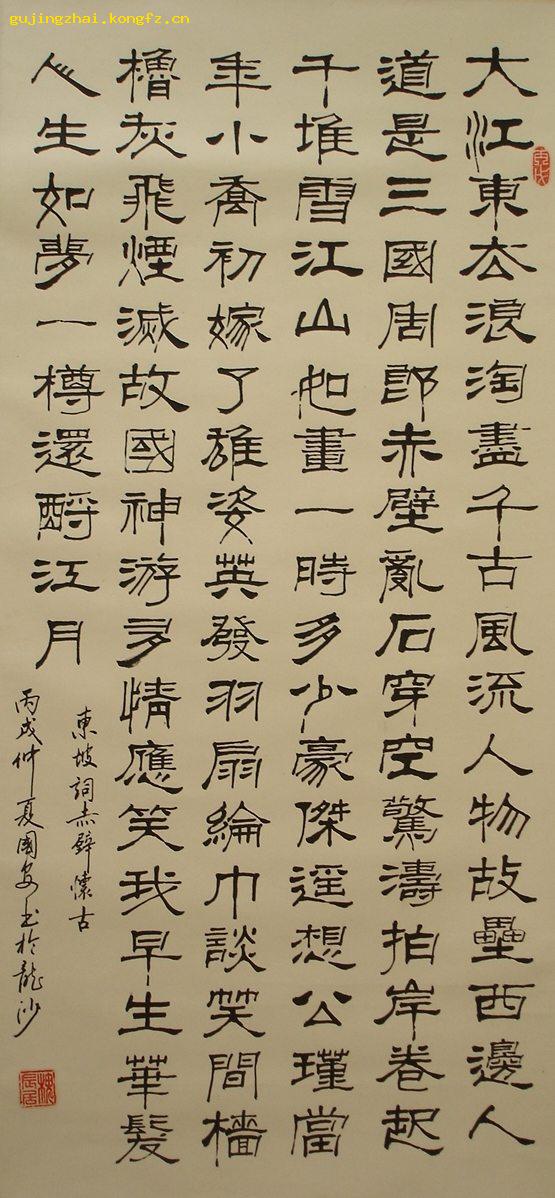 gujingzhai.kongfz.cn
大江東去浪淘盡千古風流人物故壘西邊人
道是三國周郎赤壁亂石穿空驚濤拍岸卷起
千堆雪江山如畫一時多少豪傑遥想公瑾當
年小喬初嫁了雄姿英發羽扇綸巾談笑間檣
櫓灰飛煙滅故國神游多情應笑我早生華髮
人生如夢一樽還酹江月
東坡詞赤壁懷古
丙戌仲夏國安书於龍沙